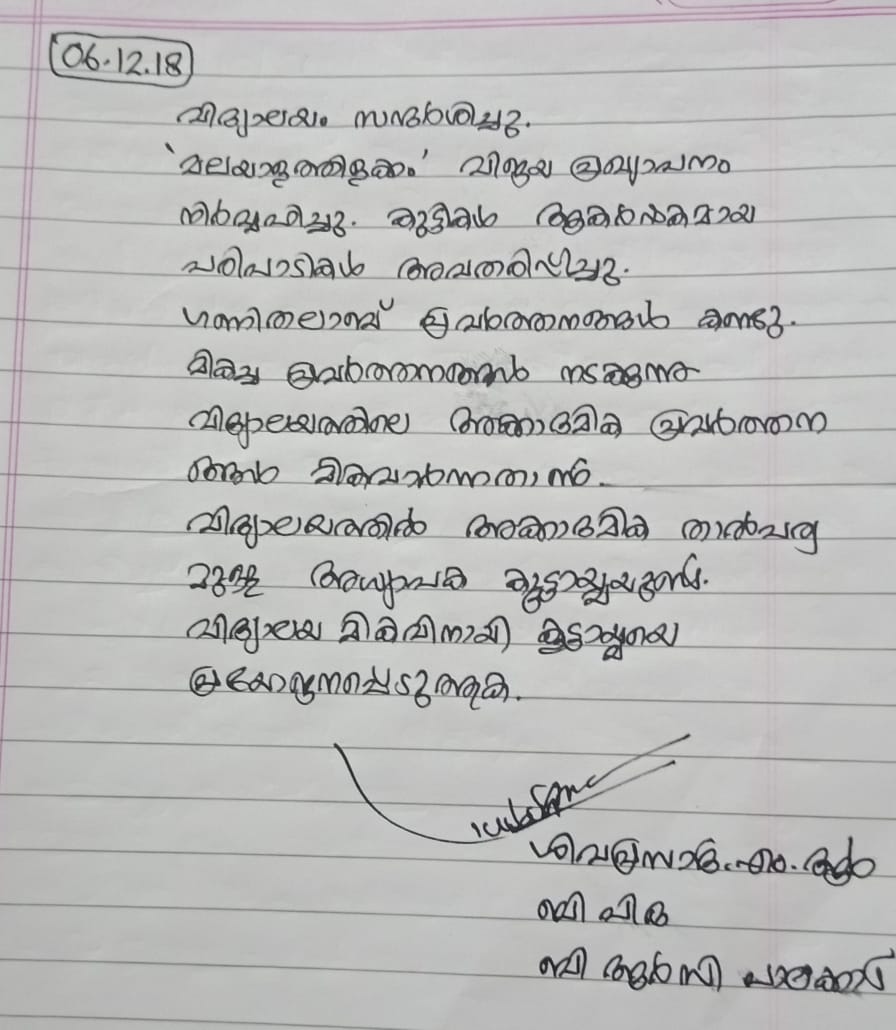 06.12.18
വിദ്യാലയം സന്ദർശിച്ചു.
'മലയാളത്തിളക്കം' വിജയ പ്രഖ്യാപനം
നിർവ്വഹിച്ചു. കുട്ടികൾ ആകർഷകമായ
പരിപാടികൾ അവതരിപ്പിച്ചു.
ഗണിതലാബ് പ്രവർത്തനങ്ങൾ കണ്ടു.
മികച്ച പ്രവർത്തനങ്ങൾ നടക്കുന്ന
വിദ്യാലയത്തിലെ അക്കാദമിക പ്രവർത്തന
ങ്ങൾ മികവാർന്നതാണ്.
വിദ്യാലയത്തിൽ അക്കാദമിക താൽപര്യ
മുള്ള അധ്യാപക കൂട്ടായ്മയുണ്ട്.
വിദ്യാലയ മികവിനായി കൂട്ടായ്മയെ
പ്രയോജനപ്പെടുത്തുക.
ശിവപ്രസാദ്. എം. ആർ
ബി പി ഒ
ബി ആർ സി പാലക്കാട്